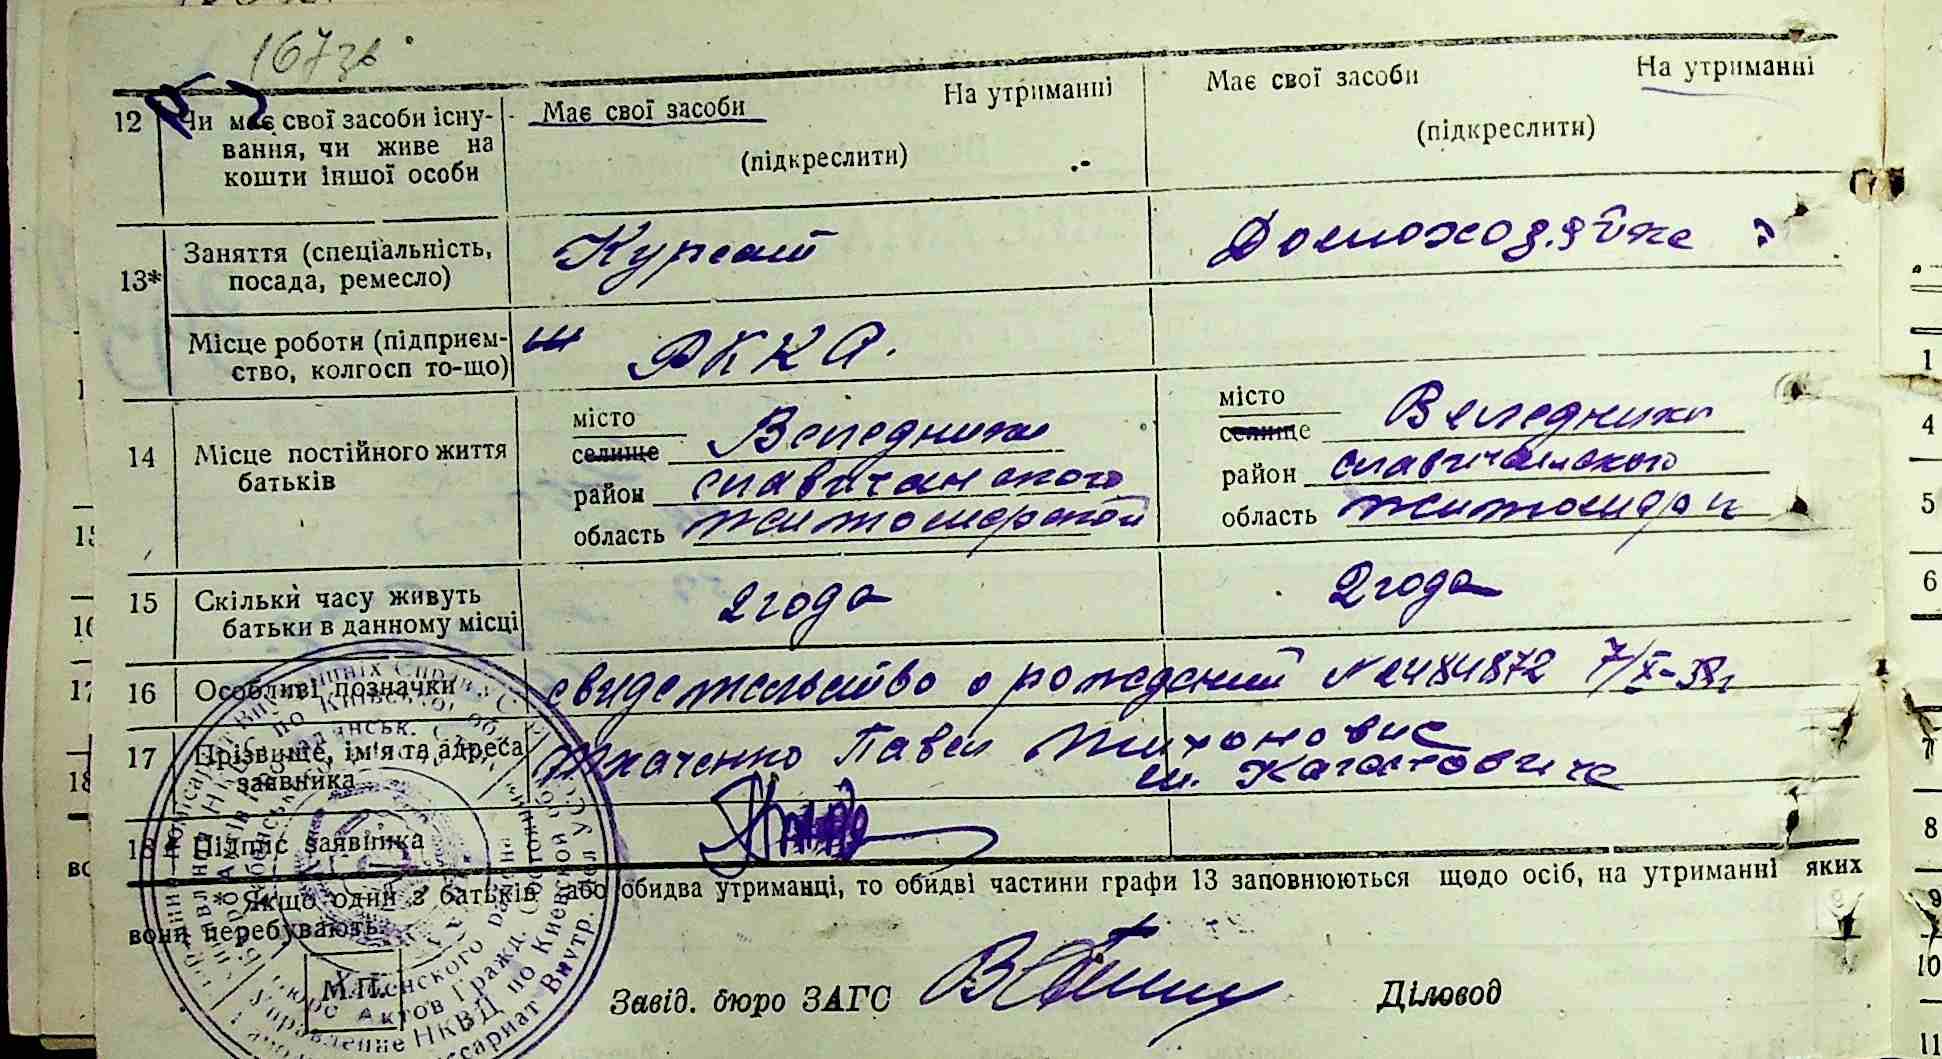 167зв
12 Чи має свої засоби існу-
вання, чи живе на
кошти іншої особи
Має свої засоби На утриманні
(підкреслити)
Має свої засоби На утриманні
(підкреслити)
13* Заняття (спеціальність,
посада, ремесло)
Курсант
Домохозяйка
Місце роботи (підприєм-
ство, колгосп то-що)
РККА.
14 Місце постійного життя
батьків
місто
селище Веледники
район славичанского
область житомирской
місто
селище Веледники
район славичанского
область житомирск
15 Скільки часу живуть
батьки в данному місці
2 года
2 года
16 Особливі позначки
свидетельство о рождении N 2484872 7/X-38г
17 Прізвище, ім'я та адреса
заявника
Ткаченко Павел Тихонович
м. Кагановича
18 Підпис заявника
* Якщо один з батьків або обидва утриманці, то обидві частини графи 13 заповнюються щодо осіб, на утриманні яких
вони перебувають.
М.П.
Завід. бюро ЗАГС
Діловод
1
4
5
6
7
8
9
10
11